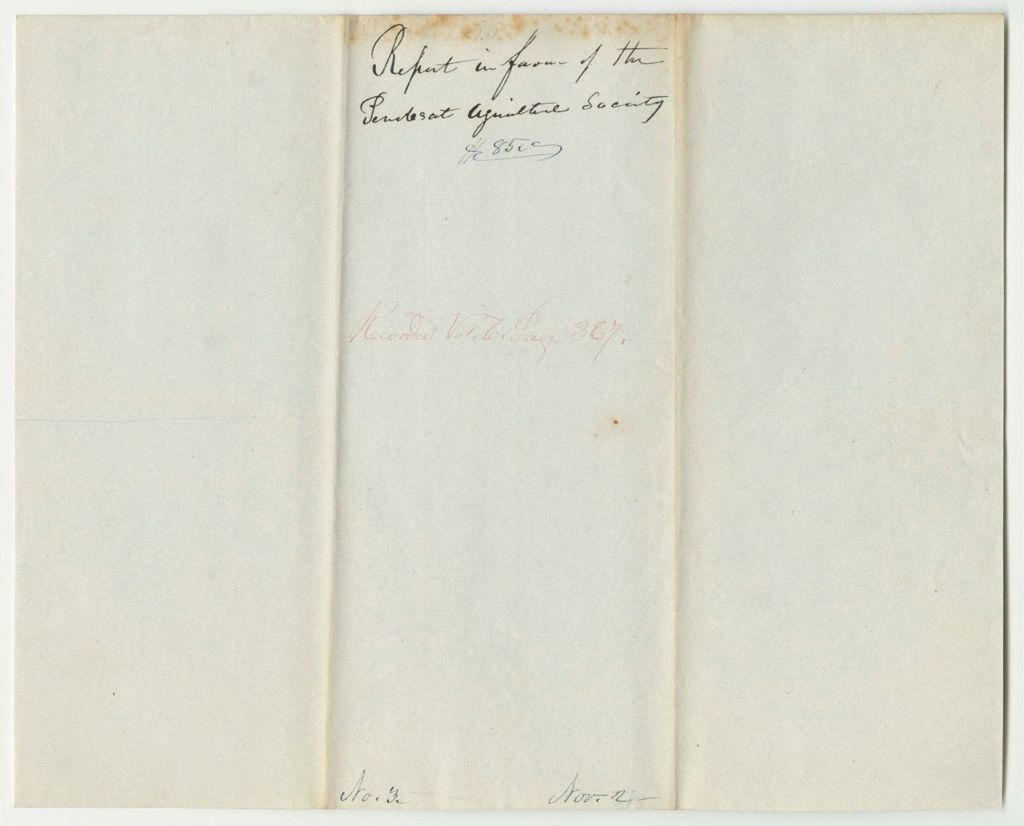 Report in favour of the
Penobscot Agricultural Society
Recorded Vol. 6. Page 367.
No. 3.
Nov. 2